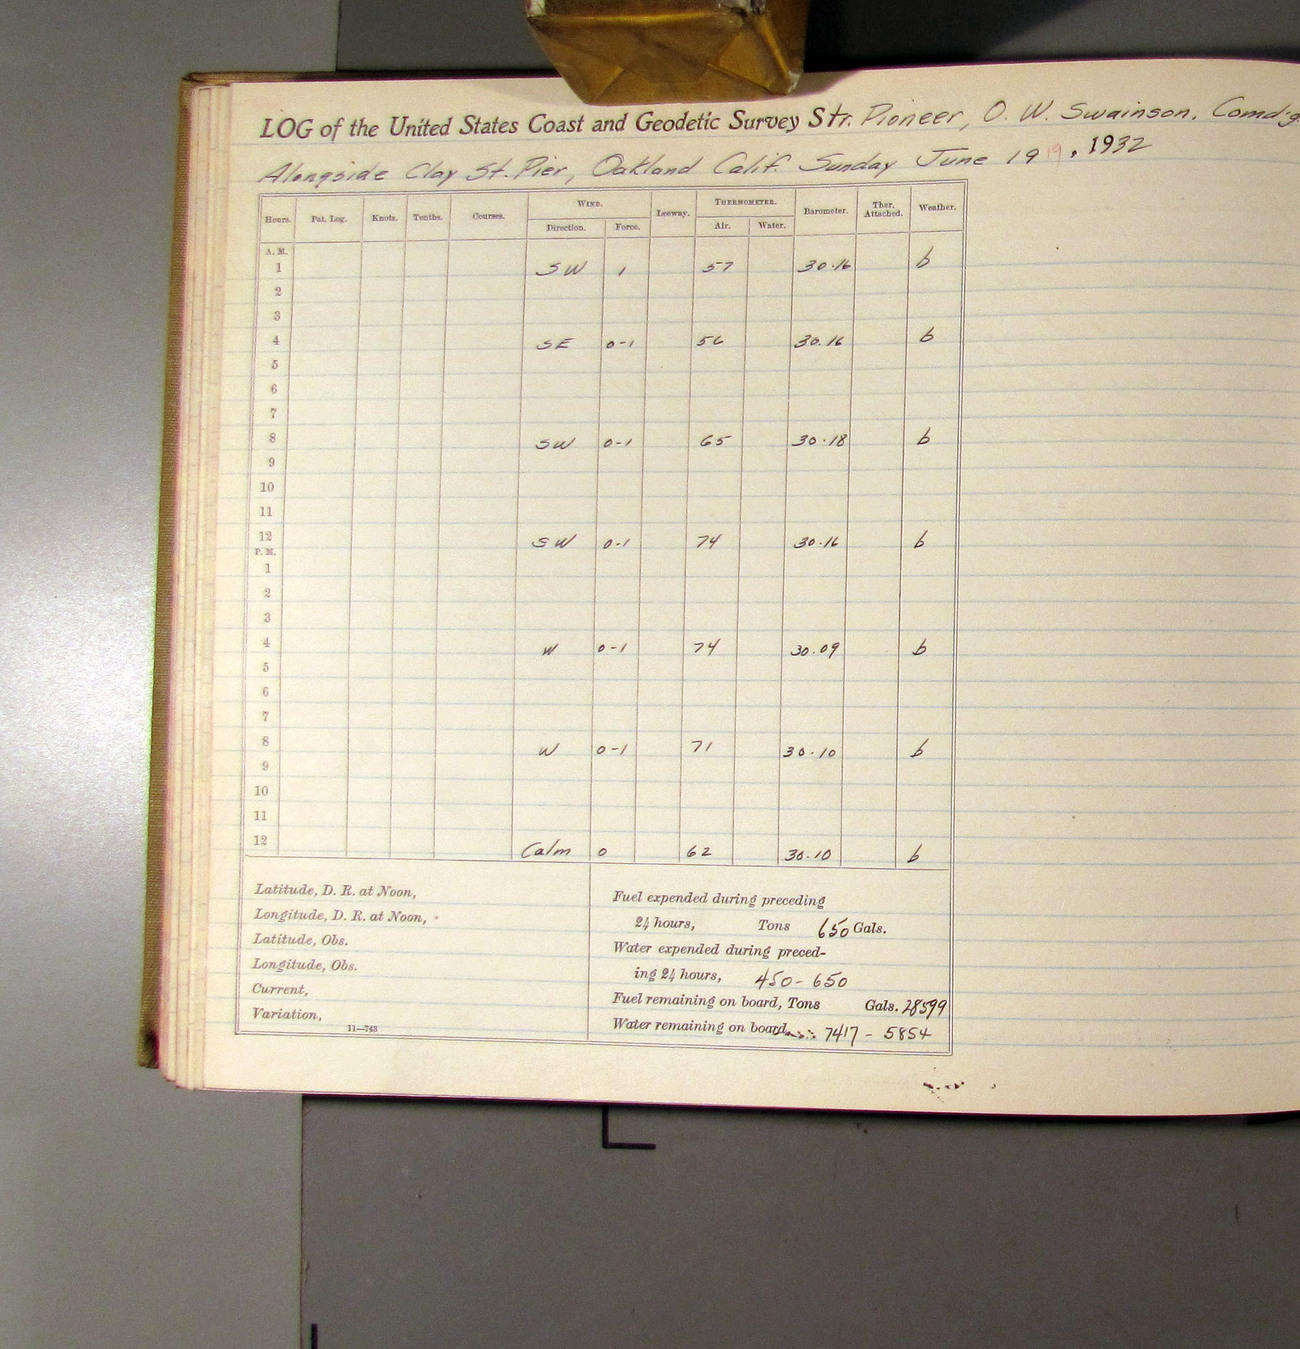 LOG of the United States Coast and Geodetic Survey Str. Pioneer, O. W. Swainson, Comd'g.
Alongside Clay St. Pier, Oakland Calif. Sunday June 19 19, 1932
Hours. Pat. Log. Knots. Tenths. Courses. WIND. Leeway. THERMOMETER. Barometer. Ther. Attached. Weather.
Direction. Force. Air. Water.
A. M.
1 SW 1 57 30.16 b
2
3
4 SE 0-1 56 30.16 b
5
6
7
8 SW 0-1 65 30.18 b
9
10
11
12 SW 0-1 74 30.16 b
P. M.
1
2
3
4 W 0-1 74 30.09 b
5
6
7
8 W 0-1 71 30.10 b
9
10
11
12 Calm 0 62 30.10 b
Latitude, D. R. at Noon,
Longitude, D. R. at Noon,
Latitude, Obs.
Longitude, Obs.
Current,
Variation,
11—743
Fuel expended during preceding
24 hours, Tons 650 Gals.
Water expended during preced-
ing 24 hours, 450 - 650
Fuel remaining on board, Tons Gals. 28599
Water remaining on board, 7417 - 5854